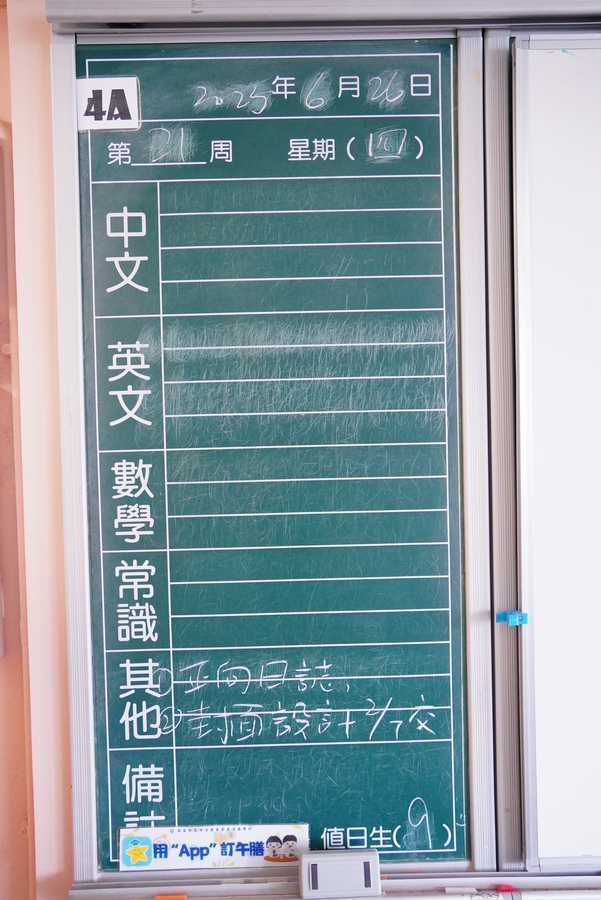 4A
2025年6月26日
第21周 星期(四)
中文
英文
數學
常識
其他
①正向日誌,
②封面設計 2/7交
備註
用“App”訂午膳
值日生(9)